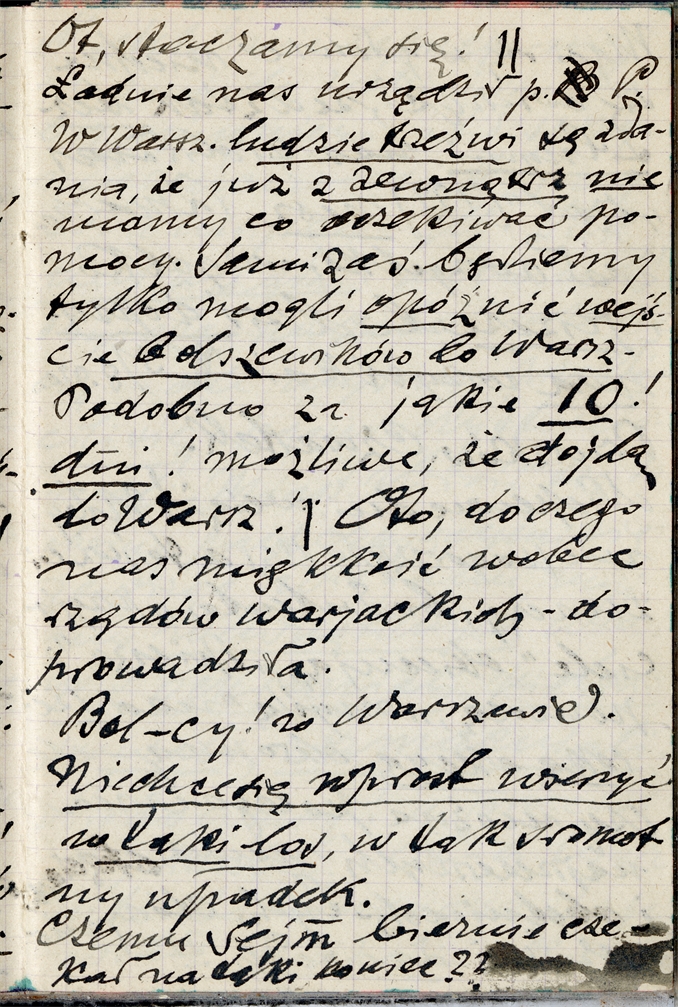 Ot, staczamy się! ||
Ładnie nas urządził p. P.
W Warsz. ludzie trzeźwi są zda-
nia, że już z zewnątrz nie
mamy co oczekiwać po-
mocy. Sami zaś będziemy
tylko mogli opóźnić wejś-
cie bolszewików do Warsz.
Podobno za jakie 10!
dni! możliwe, że dojdą
do Warsz! Oto, do czego
nas miękkość wobec
rządów warjackich - do-
prowadziła.
Bol-cy! w Warszawie).
Niechce się wprost wierzyć
w taki los, w tak sromot
ny upadek.
Czemu Sejm biernie cze-
kał na taki koniec??